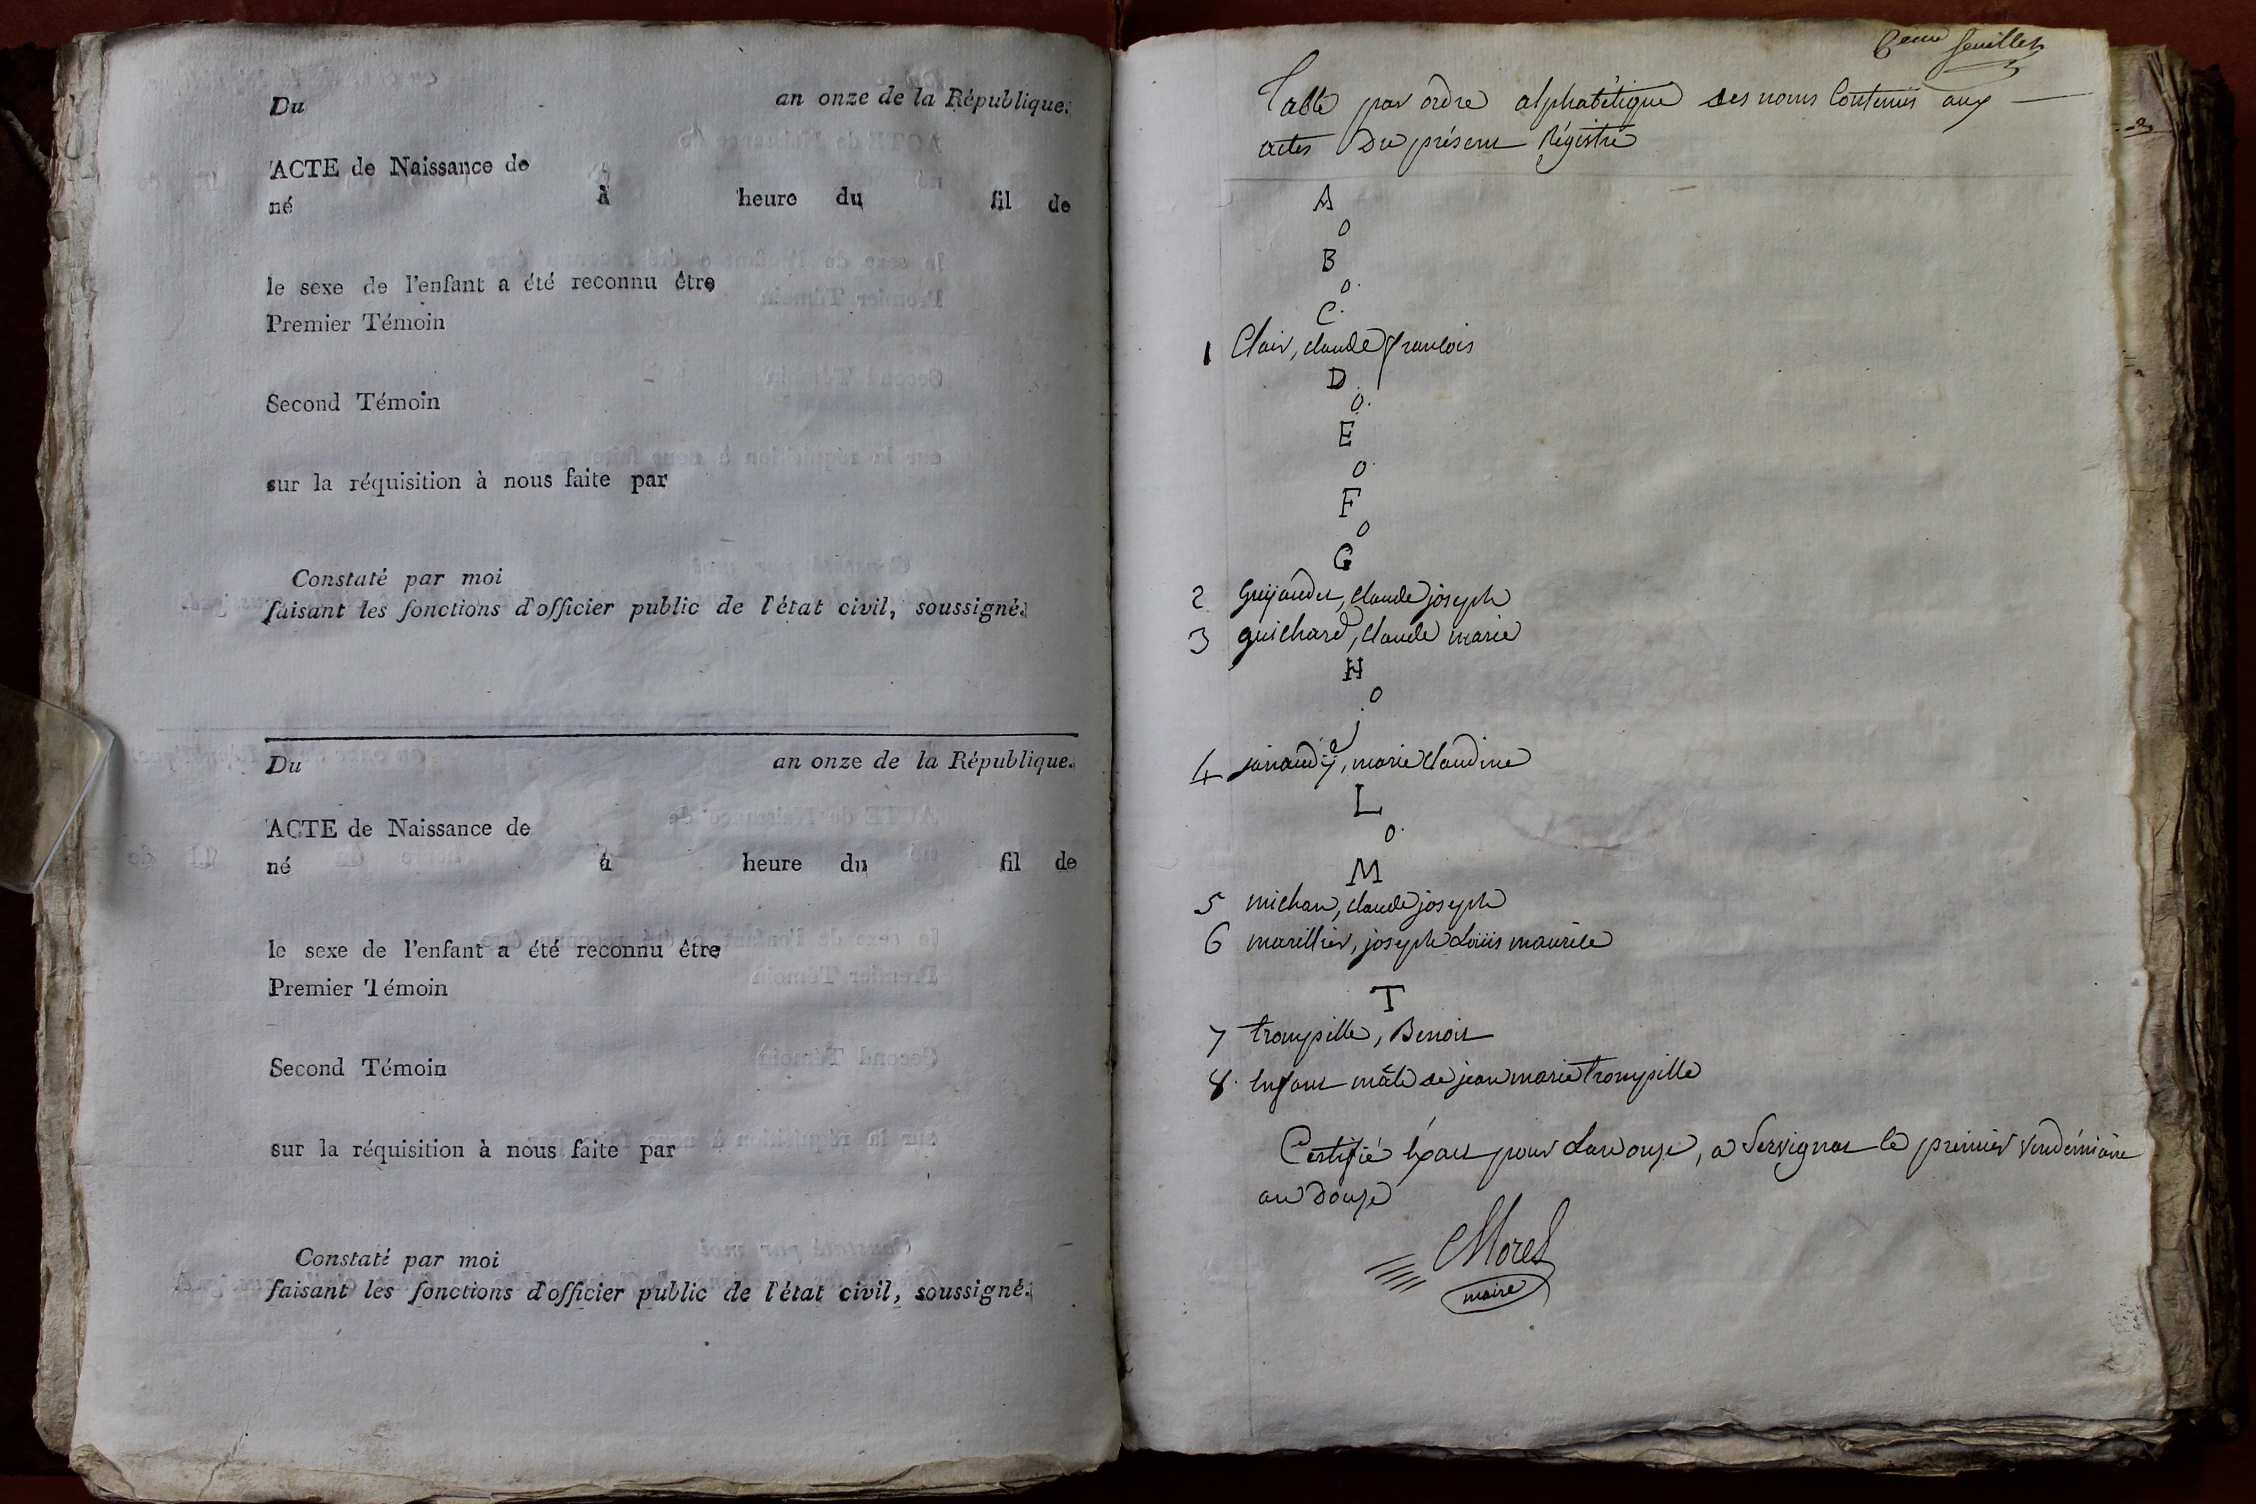 Du an onze de la République.
ACTE de Naissance de
né à heure du fil de
le sexe de l'enfant a été reconnu être
Premier Témoin
Second Témoin
sur la réquisition à nous faite par
Constaté par moi
faisant les fonctions d'officier public de l'état civil, soussigné.
Du an onze de la République.
ACTE de Naissance de
né à heure du fil de
le sexe de l'enfant a été reconnu être
Premier Témoin
Second Témoin
sur la réquisition à nous faite par
Constaté par moi
faisant les fonctions d'officier public de l'état civil, soussigné.
feuillet
Table par ordre alphabétique des noms Contenus aux
actes Du présent Régistre
A
0
B
0.
C.
1 Clair, claude françois
D.
0.
E
0.
F
0
G
2 Guÿaudet, claude joseph
3 guichard, claude marie
H
0
j
4 janaudÿ, marie claudine
L
0.
M
5 michau, claude joseph
6 marillier, joseph Loüis maurice
T
7 trompille, Benoit
8. Enfant mâle de jean marie trompille
Certifié Éxact pour Lan onze, a Servignat le premier vendémiaire
an douze
Morel
maire